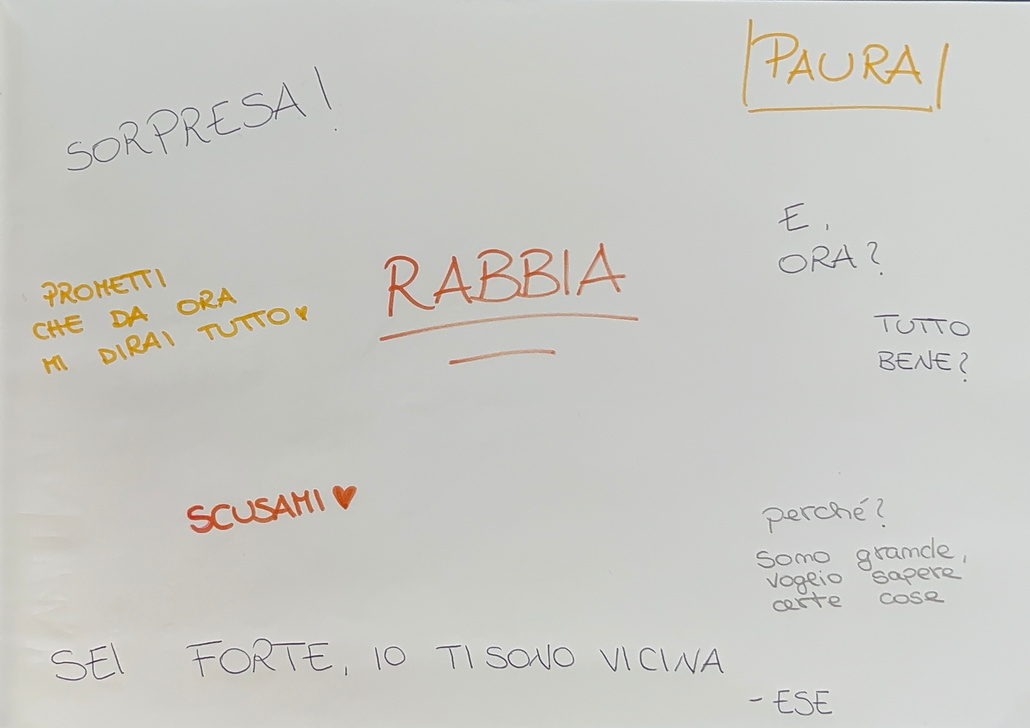 PAURA
SORPRESA!
E,
ORA?
RABBIA
PROMETTI
CHE DA ORA
MI DIRAI TUTTO
TUTTO
BENE?
SCUSAMI
perché?
Sono grande,
voglio sapere
certe cose
SEI FORTE, IO TI SONO VICINA
- ESE